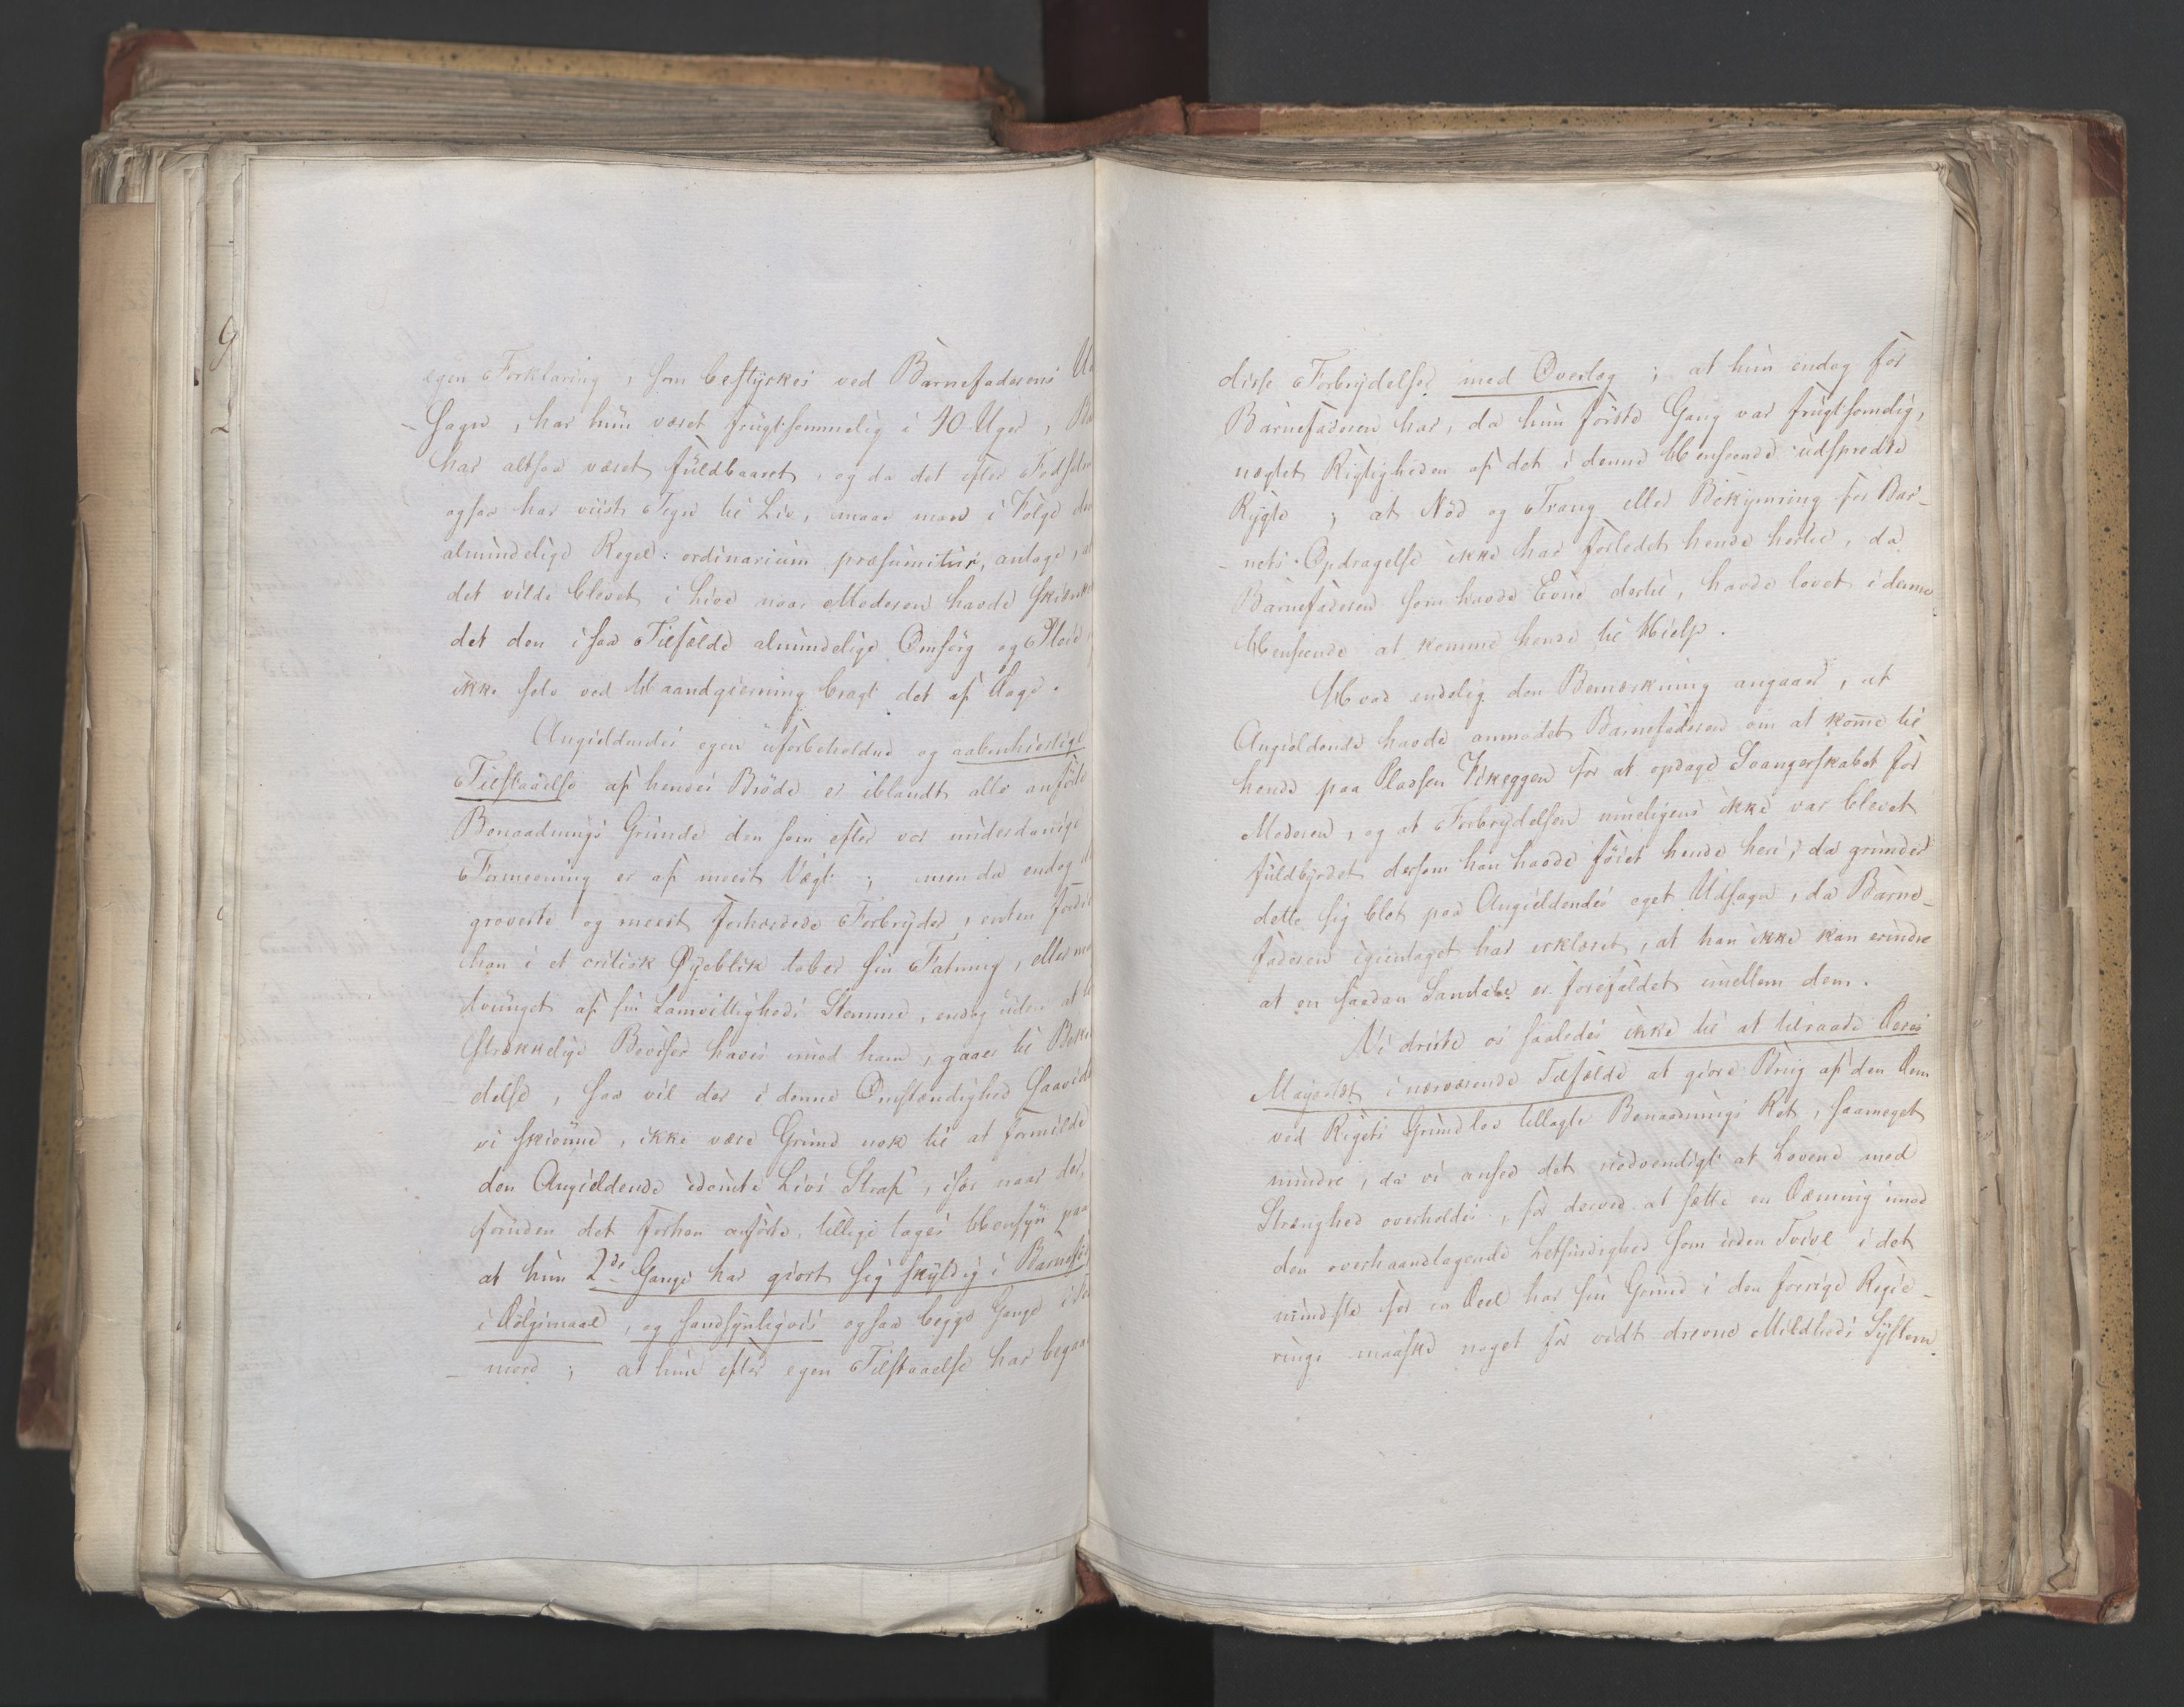 egen Forklaring, som bestyrkes ved Barnefaderens Ud
-sagn, har hun været frugtsommelig i 40 Uger, Ba
har altsaa været fuldbaaret, og da det efter Fødsele
ogsaa har viist Tegn til Liv, maae man i Følge de
almindelige Regel: ordinarium præsumitur, antage, at
det vilde blevet i Live naar Moderen havde skienke
det den i saa Tilfælde almindelige Omsorg og Pleie
ikke selv ved Haandgierning bragt det af Dage.
Angieldendes egen uforbeholdne og aabenhiertige
Tilstaaelse af hendes Brøde er iblandt alle anførte
Benaadnings Grunde den som efter vor underdanige
Formeening er af meest Vægt; men da endog
groveste og meest forhærdede Forbryder, enten fordi
han i et critisk Øyeblik taber sin Fatning, eller
tvunget af sin Samvittigheds Stemme, endog uden at
strækkelige Beviser haves imod ham, gaaer til Beken
-delse, saa vil der i denne Omstændighed saavidt
vi skiønne, ikke være Grund nok til at formilde
den Angieldende idømte Livs Straf, især naar der,
foruden det forhen anførte, tillige tages Hensyn paa
at hun 2de Gange har giort sig skyldig i Barnefø
i Dølgsmaal, og sandsynligviis ogsaa begge Gange i
-mord; at hun efter egen Tilstaaelse har begaa
disse Forbrydelser med Overlæg; at hun endog for
Barnefaderen har, da hun første Gang var frugtsomelig,
nægtet Rigtigheden af det i denne Henseende udspredte
Rygte; at Nød og Trang eller Bekymring for Bar-
-nets Opdragelse ikke har forledet hende hertil, da
Barnefaderen som havde Evne dertil, havde lovet i denne
Henseende at komme hende til Hielp.
Hvad endelig den Bemærkning angaaer, at
Angieldende havde anmodet Barnefaderen om at kom̄e til
hende paa Pladsen Vikeggen for at opdage Svangerskabet for
Moderen, og at Forbrydelsen rimeligens ikke var blevet
fuldbyrdet dersom han havde føiet hende heri, da grunder
dette sig blot paa Angieldendes eget Udsagn, da Barne-
faderen igientaget har erklæret, at han ikke kan erindre
at en saadan Samtale er forefaldet imellem dem.
Vi driste os saaledes ikke til at tilraade Deres
Majestæt i nærværende Tilfælde at giøre Brug af den Dem
ved Rigets Grundlov tillagte Benaadnings Ret, saameget
mindre, da vi ansee det nødvendigt at Lovene med
Strænghed overholdes, for derved at sætte en Dæmning imod
den overhaandtagende Letsindighed som uden Tvivl i det
mindste for en Deel har sin Grund i den forrige Regie-
rings maaskee noget for vidt drevne Mildheds System.